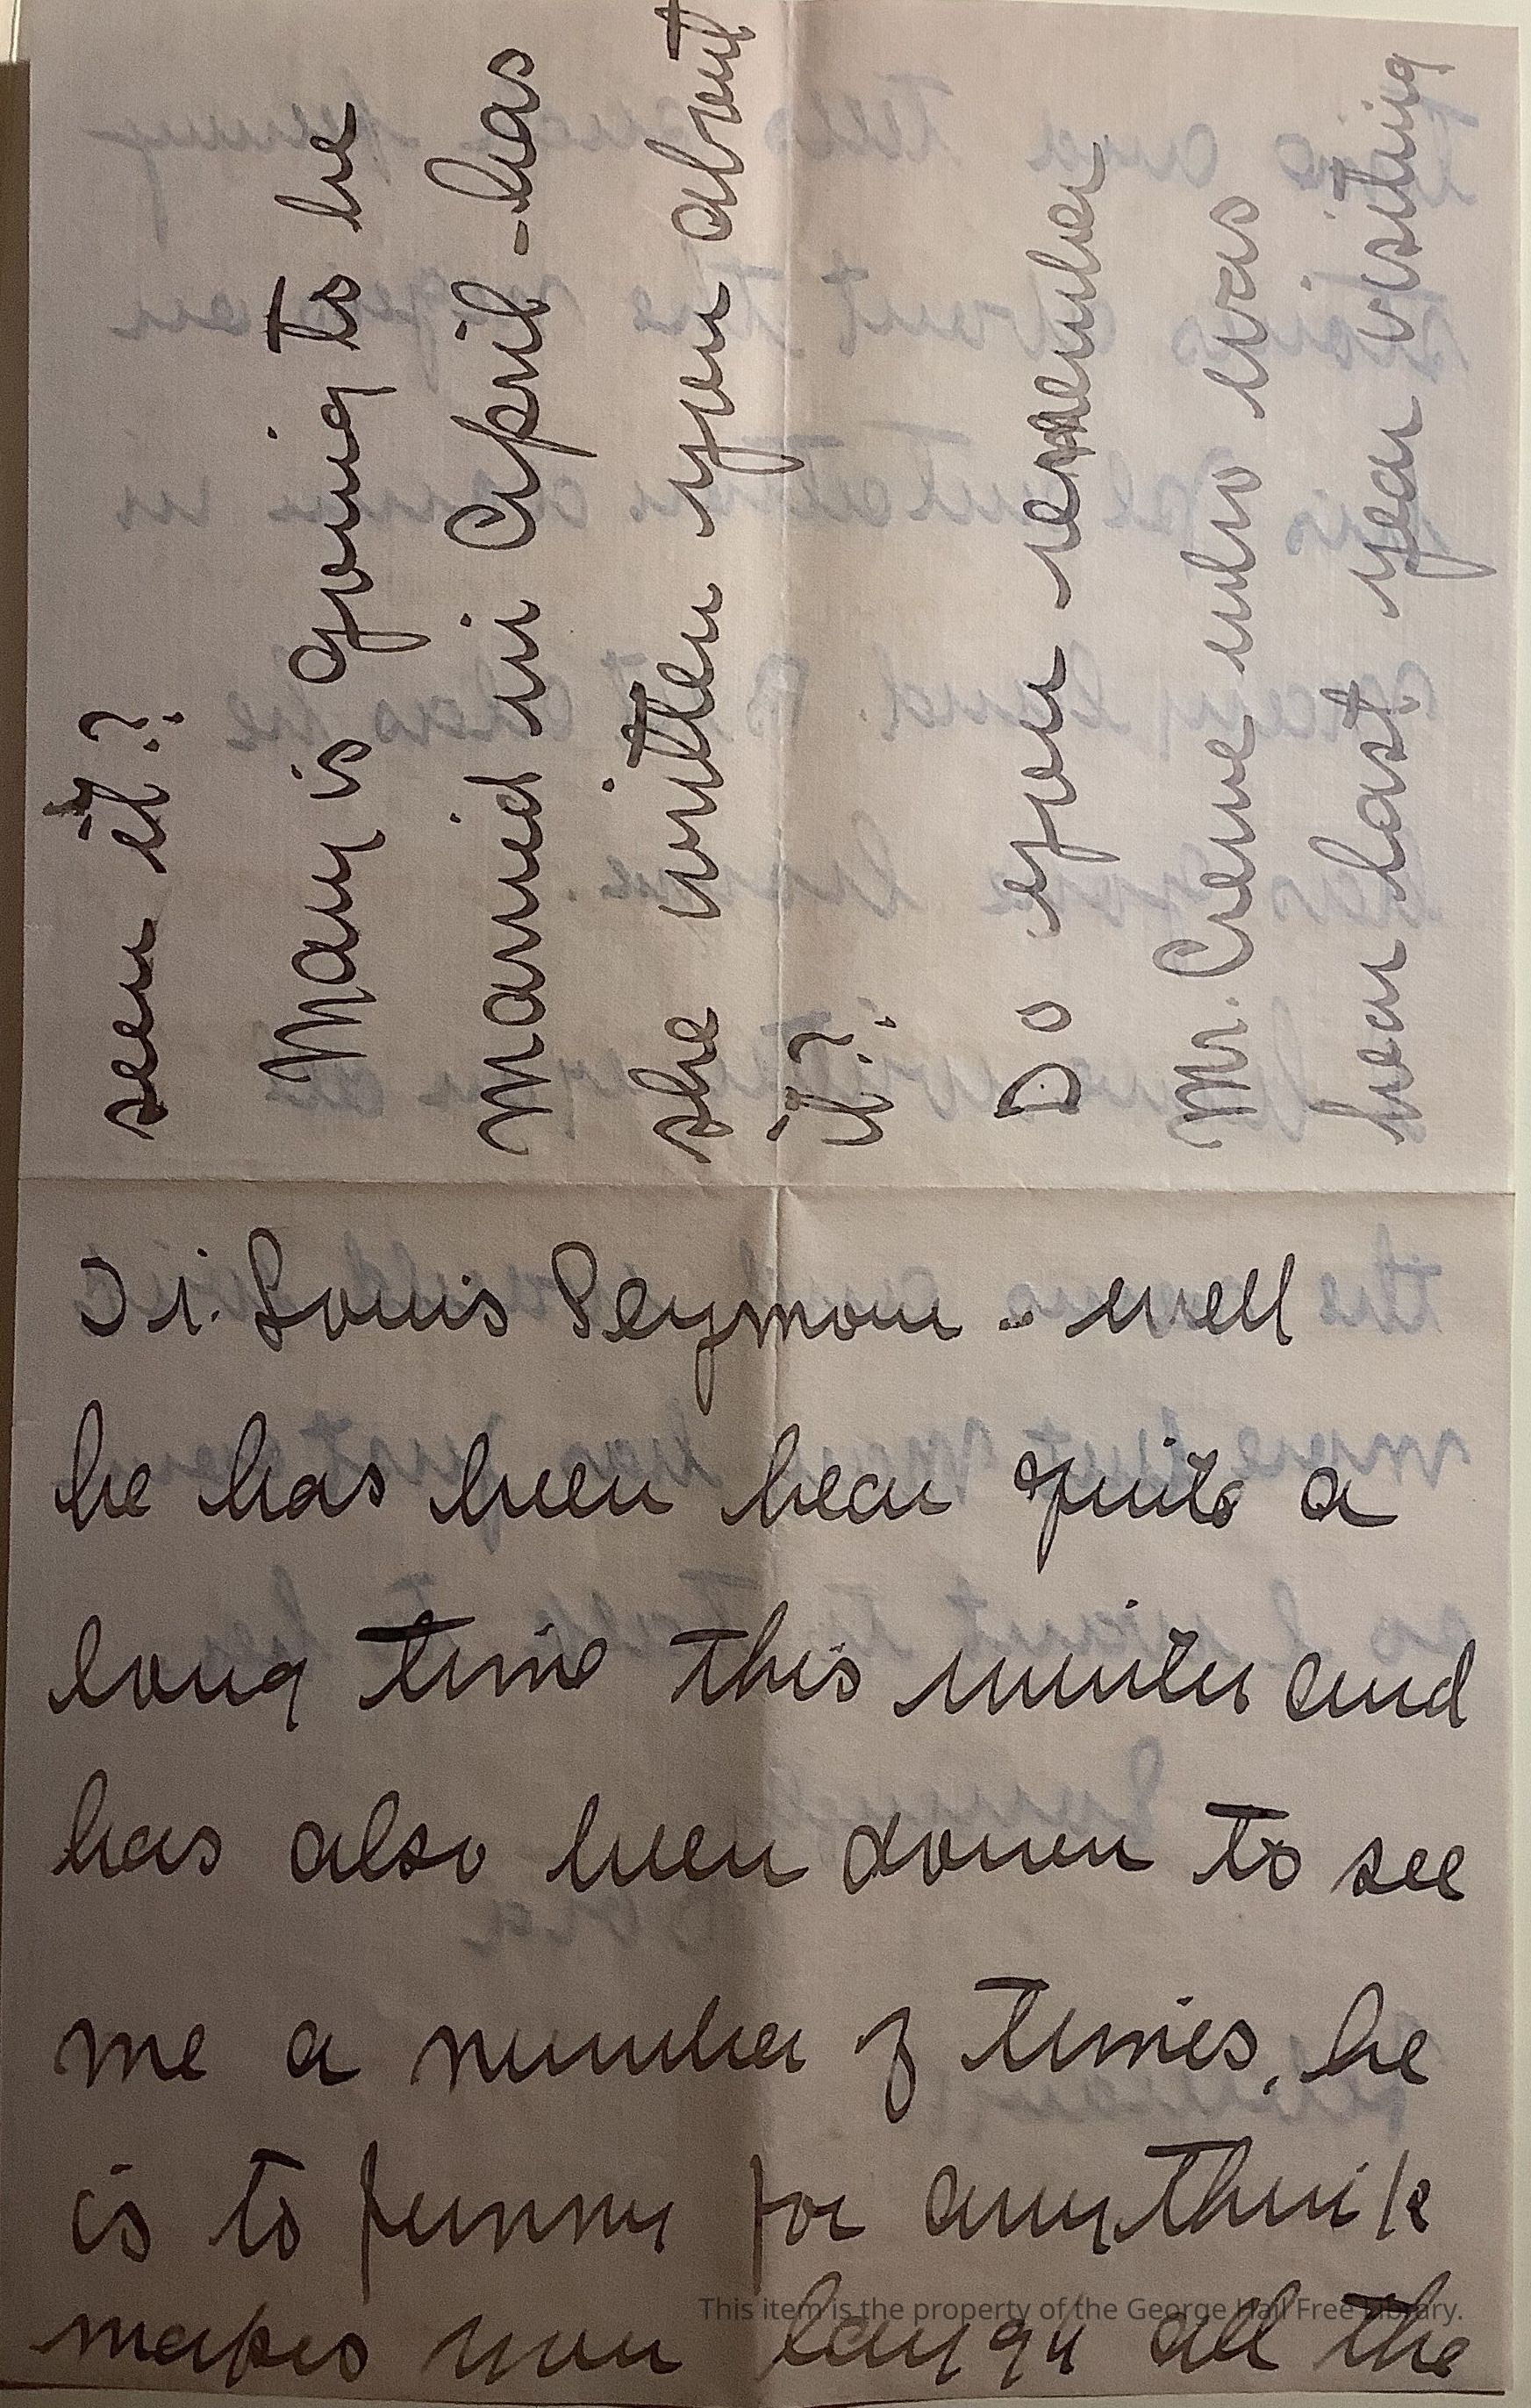 seen it??
Mary is going to be
married in April - has
she written you about
it??
Do you remember
Mr. Creme who was
hear last year visiting
Dr. Louis Seymour - well
he has been hear quite a
long time this winter and
has also been down to see
me a number of times, he
is to funny for anythink
makes you laugh all the
This item is the property of the George Hail Free Library.